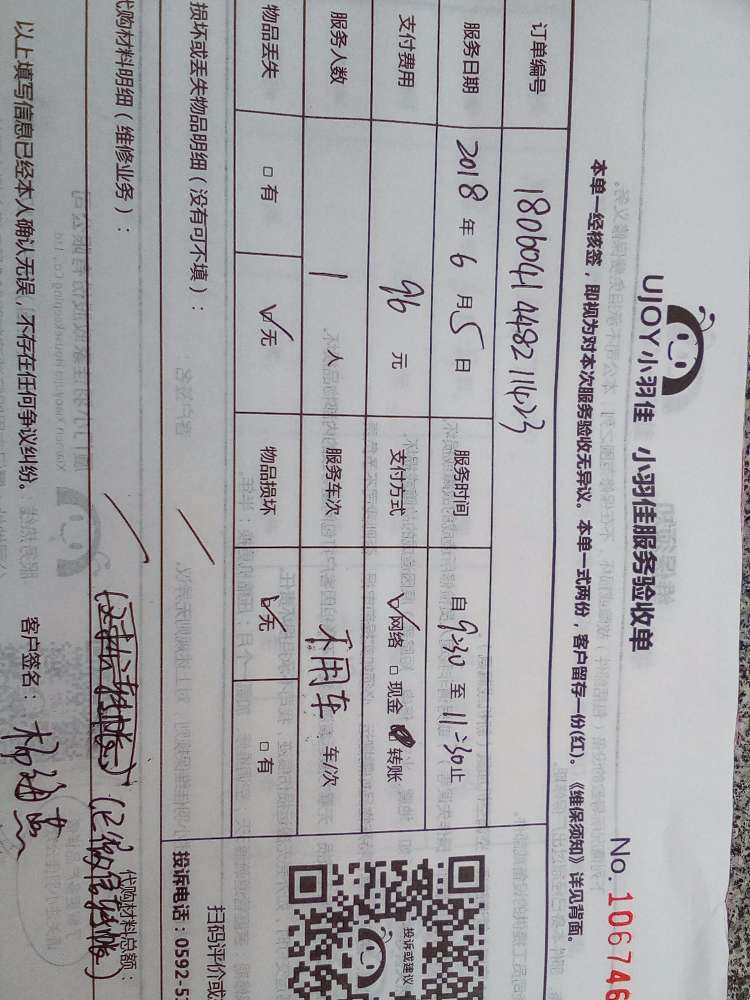 UJOY小羽佳 小羽佳服务验收单
No. 106746
本单一经核签，即视为对本次服务验收无异议。本单一式两份，客户留存一份(红)。《维保须知》详见背面。
订单编号 1806041448211423
服务日期 2018 年 6 月 5 日 服务时间 自 9:30 至 11:30止
支付费用 96 元 支付方式 ☑网络 □现金 转账
服务人数 1 人 服务车次 不用车 车/次
物品丢失 □有 ☑无 物品损坏 ☑无 □有
损坏或丢失物品明细（没有可不填）： /
投诉或建议
扫码评价或
投诉电话：0592-5
代购材料明细（维修业务）： /
代购材料总额：
以上填写信息已经本人确认无误，不存在任何争议纠纷。 客户签名：